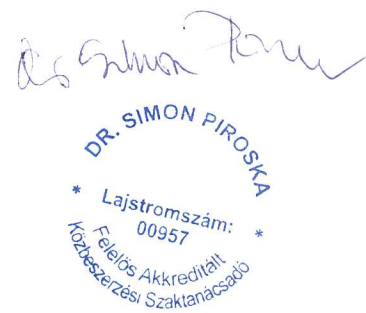 Dr Simon Piroska
DR. SIMON PIROSKA
* Lajstromszám: *
00957
Felelős Akkreditált
Közbeszerzési Szaktanácsadó